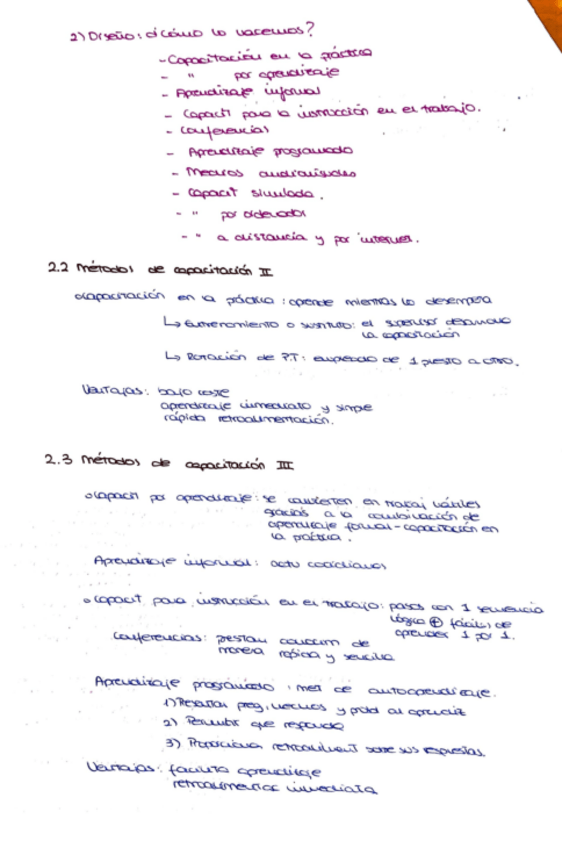 2) Diseño: ¿Cómo lo hacemos?
- Capacitación en la práctica
- " por aprendizaje
- Aprendizaje informal
- Capacit para la instrucción en el trabajo.
- Conferencias
- Aprendizaje programado
- Medios audiovisuales
- Capacit simulada.
- " por ordenador
- " a distancia y por internet.
2.2 Métodos de capacitación II
o Capacitación en la práctica: aprende mientras lo desempeña
↳ Entrenamiento o sustituto: el supervisor desarrolla
la capacitación
↳ Rotación de P.T: empleado de 1 puesto a otro.
Ventajas: bajo coste
aprendizaje inmediato y simple
rápida retroalimentación.
2.3 Métodos de capacitación III
o Capacit por aprendizaje: se convierten en trabaj hábiles
gracias a la combinación de
aprendizaje formal - capacitación en
la práctica.
Aprendizaje informal: activ cotidianas
o Capacit para instrucción en el trabajo: pasos con 1 secuencia
lógica ⊕ fáciles de
aprender 1 por 1.
Conferencias: de
manera rápida y sencilla
Aprendizaje programado: met de autoaprendizaje.
1) Presentar preg, hechos y probl al aprendiz
2) Permitir que responda
3) Proporcionar retroaliment sobre sus respuestas.
Ventajas: facilita aprendizaje
inmediata